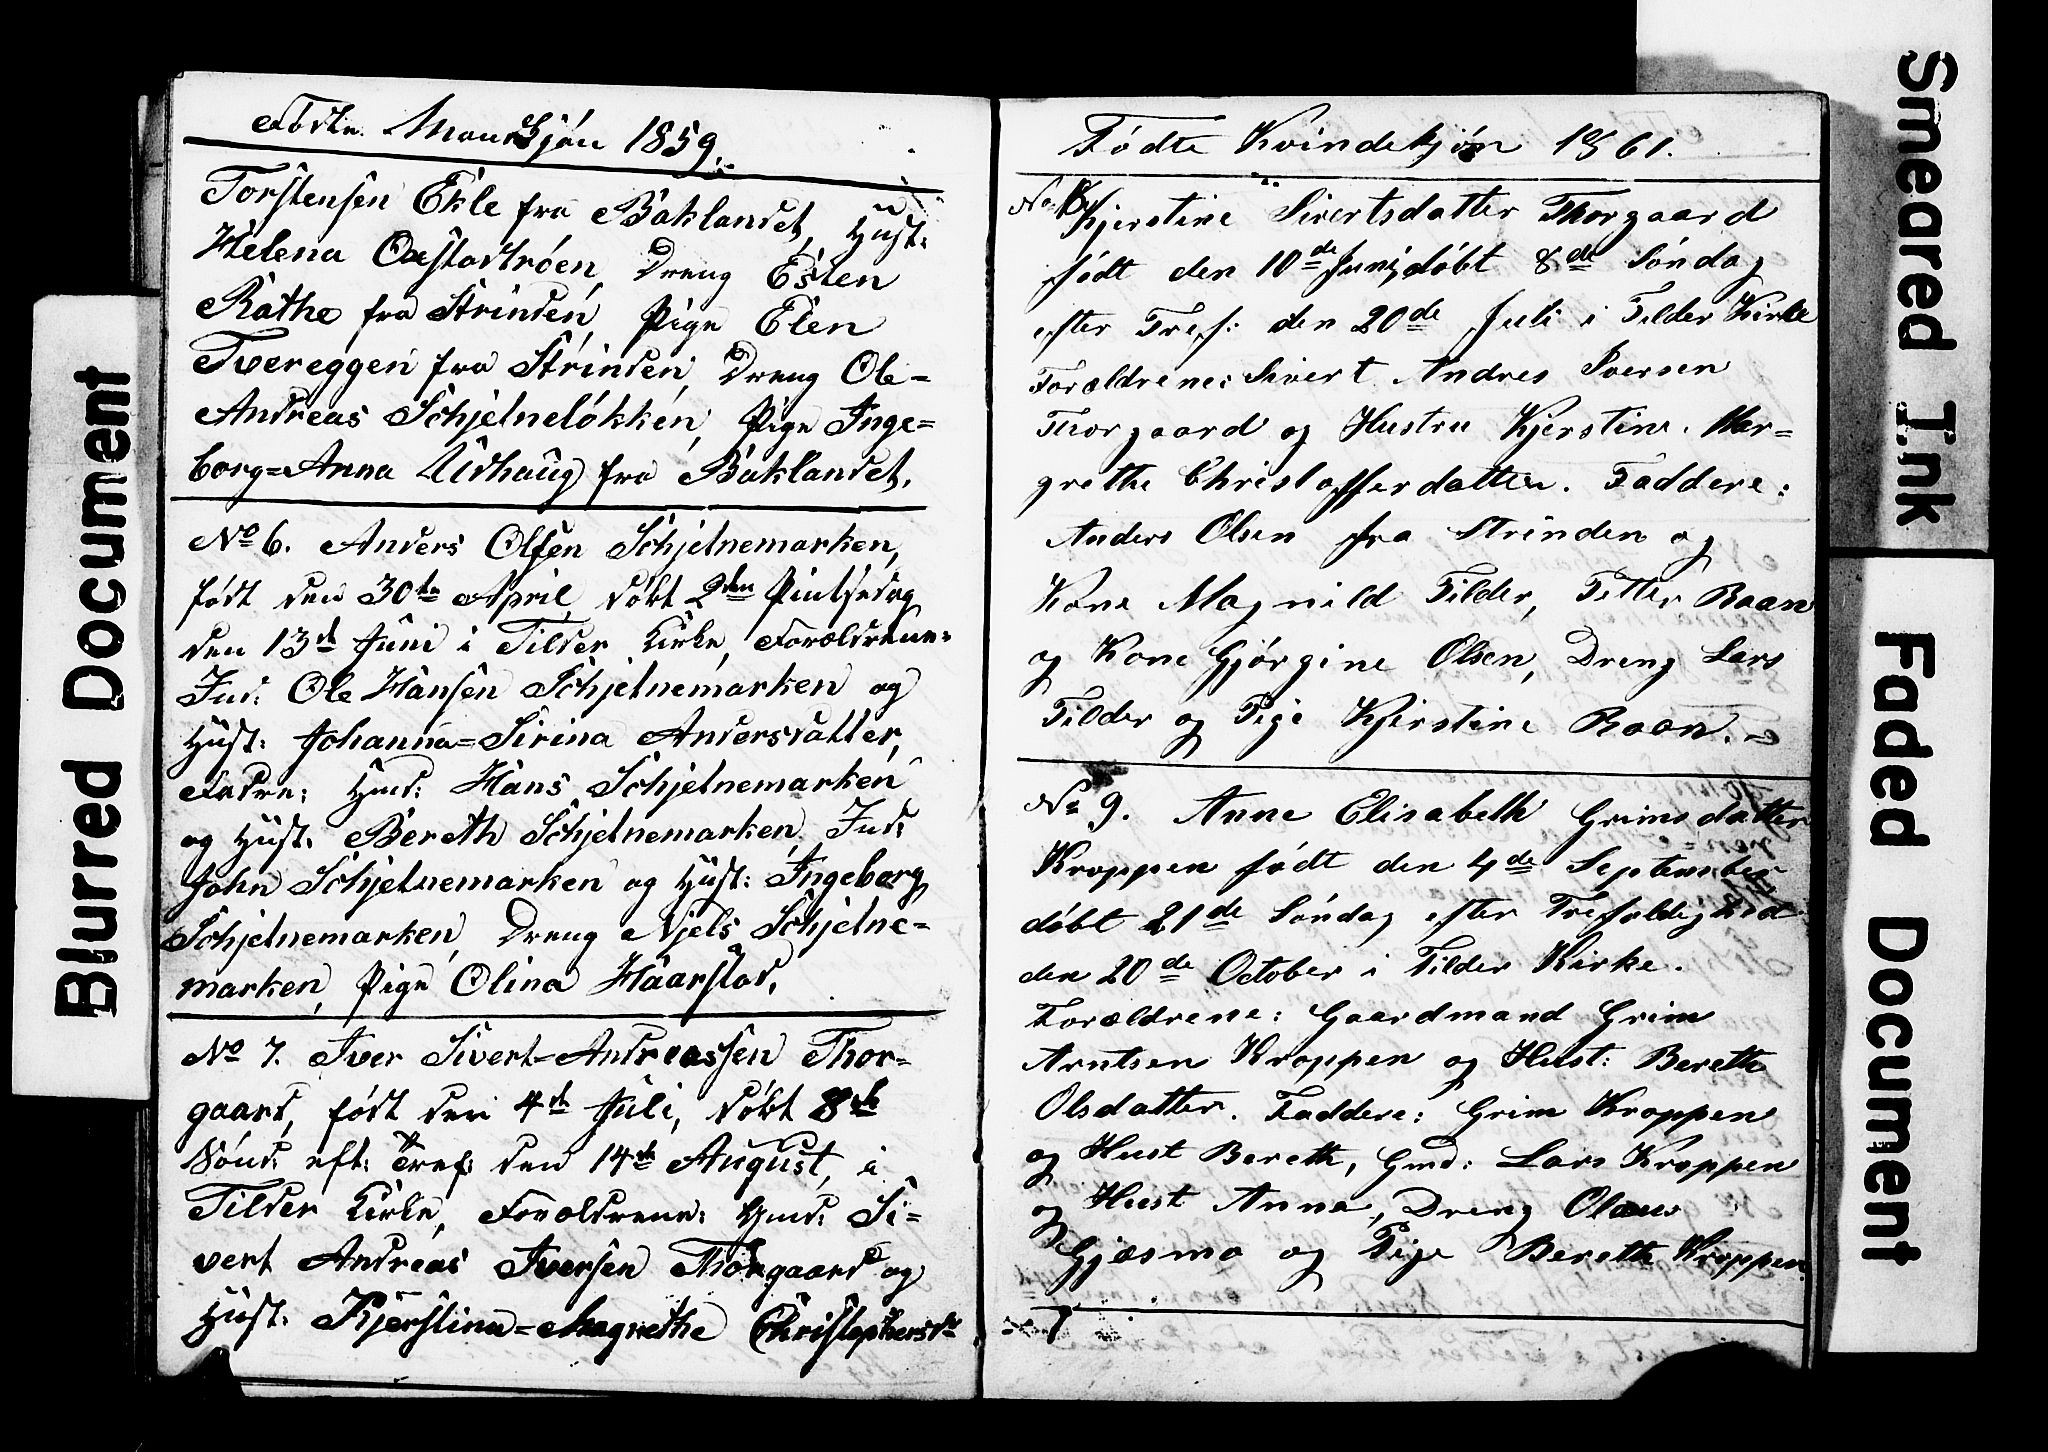 Fødte Mandkjön 1859.
Torstensen Ekle fra Baklandet, Hust:
Helena Oustaströen, Dreng Esten
Rathe fra Strinden, Pige Elen
Tvereggen fra Strinden, Dreng Ole=
Andreas Schjelnelökken, Pige Inge=
borg=Anna Udhaug fra Baklandet.
No 6. Anders Olsen Schjelnemarken,
født den 30te April, döbt 2den Pintsedag
den 13de Juni i Tilder Kirke, Forældrene:
Ind: Ole Hansen Schjelnemarken og
Hust: Johanna=Sirina Andersdatter,
Fadre: Gmd: Hans Schjelnemarken
og Hust: Bereth Schjelnemarken, Ind:
John Schjelnemarken og Hust: Ingeborg
Schjelnemarken, Dreng Njels Schjelne=
marken, Pige Olina Haarstad.
No 7. Iver Sivert=Andreassen Thor=
gaard, født den 4de Juli, döbt 8de
Sönd: eft: Tref: den 14de August, i
Tilder Kirke, Forældrene: Gmd: Si=
vert Andreas Iversen Thorgaard og
Hust: Kjerstina=Magrethe Christophersdr
Fødte Kvindekjön 1861.
No 8 Kjerstine Sivertsdatter Thorgaard
født den 10de Juni, döbt 8de Söndag
efter Tref: den 20de Juli i Tilder Kirke
Forældrene: Sivert Andres Iversen
Thorgaard og Hustru Kjerstine Mar=
grethe Christofferdatter. Faddere:
Anders Olsen fra Strinden og
Kone Magnild Tilder, Petter Raan
og Kone Gjörgine Olsen, Dreng Lars
Tilder og Pige Kjerstine Raan.
No 9. Anne Elisabeth Grimsdatter
Kroppen født den 4de September
döbt 21de Söndag efter Trefoldighed
den 20de October i Tilder Kirke.
Forældrene: Gaardmand Grim
Arntsen Kroppen og Hust: Bereth
Olsdatter. Faddere: Grim Kroppen
og Hust Bereth, Gmd: Lars Kroppen
og Hust Anna, Dreng Olaus
Gjæsmo og Pige Bereth Kroppen.
Blurred Document
Smeared Ink
Faded Document